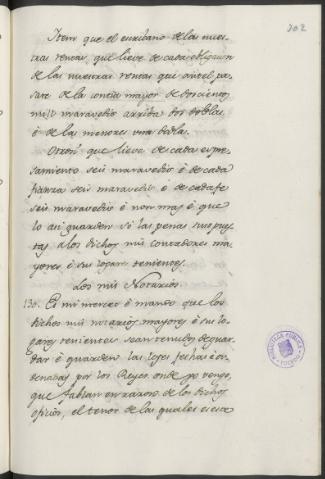 202
Item que el escribano de las nues-
tras rentas, que lieve de cada obligacion
de las nuestras rentas que antel pa-
sare de la contia mayor de doscientos
mill maravedis arriba dos doblas,
é de las menores una dobla.
Otrosi que lieve de cada empre-
samiento seis maravedis é de cada
fianza seis maravedis é de cada fe
seis maravedis é non mas é que
lo asi guarden só las penas suspues-
tas a los dichos mis contadores ma-
yores é sus logares tenientes.
Los mis Notarios
130. Es mi merced é mando que los
dichos mis notarios mayores é sus lo-
gares tenientes sean tenudos de guar-
dar é guarden las leyes fechas é or-
denadas por los Reyes onde yo vengo,
que fablan en razon de los dichos
oficios, el tenor de las quales es este
BIBLIOTECA PUBLICA
TOLEDO